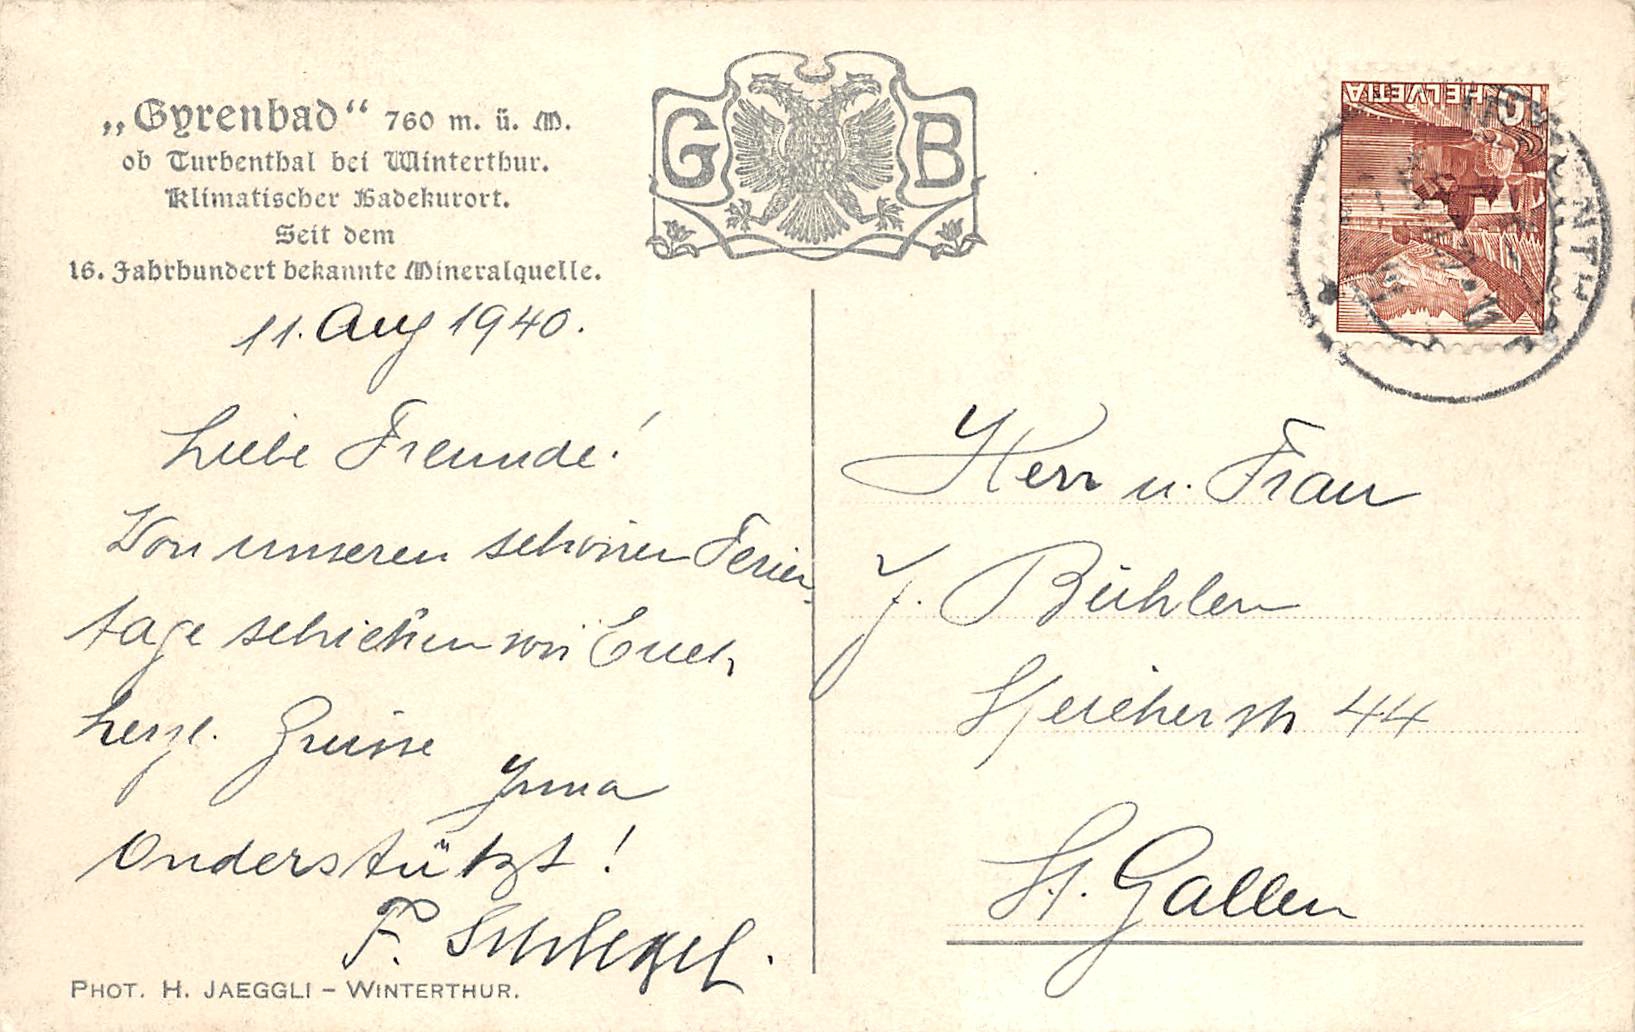 „Gyrenbad“ 760 m. ü. M.
ob Turbenthal bei Winterthur.
Klimatischer Badekurort.
Seit dem
16. Jahrhundert bekannte Mineralquelle.
G B
10 HELVETIA
11. Aug 1940.
Liebe Freunde!
Von unseren schönen Ferien-
tage schicken wir Euch
herzl. Grüsse
Irma
Onderstützt!
F. Schlegel.
PHOT. H. JAEGGLI – WINTERTHUR.
Herr u. Frau
J. Bühler
Speicherstr 44
St. Gallen